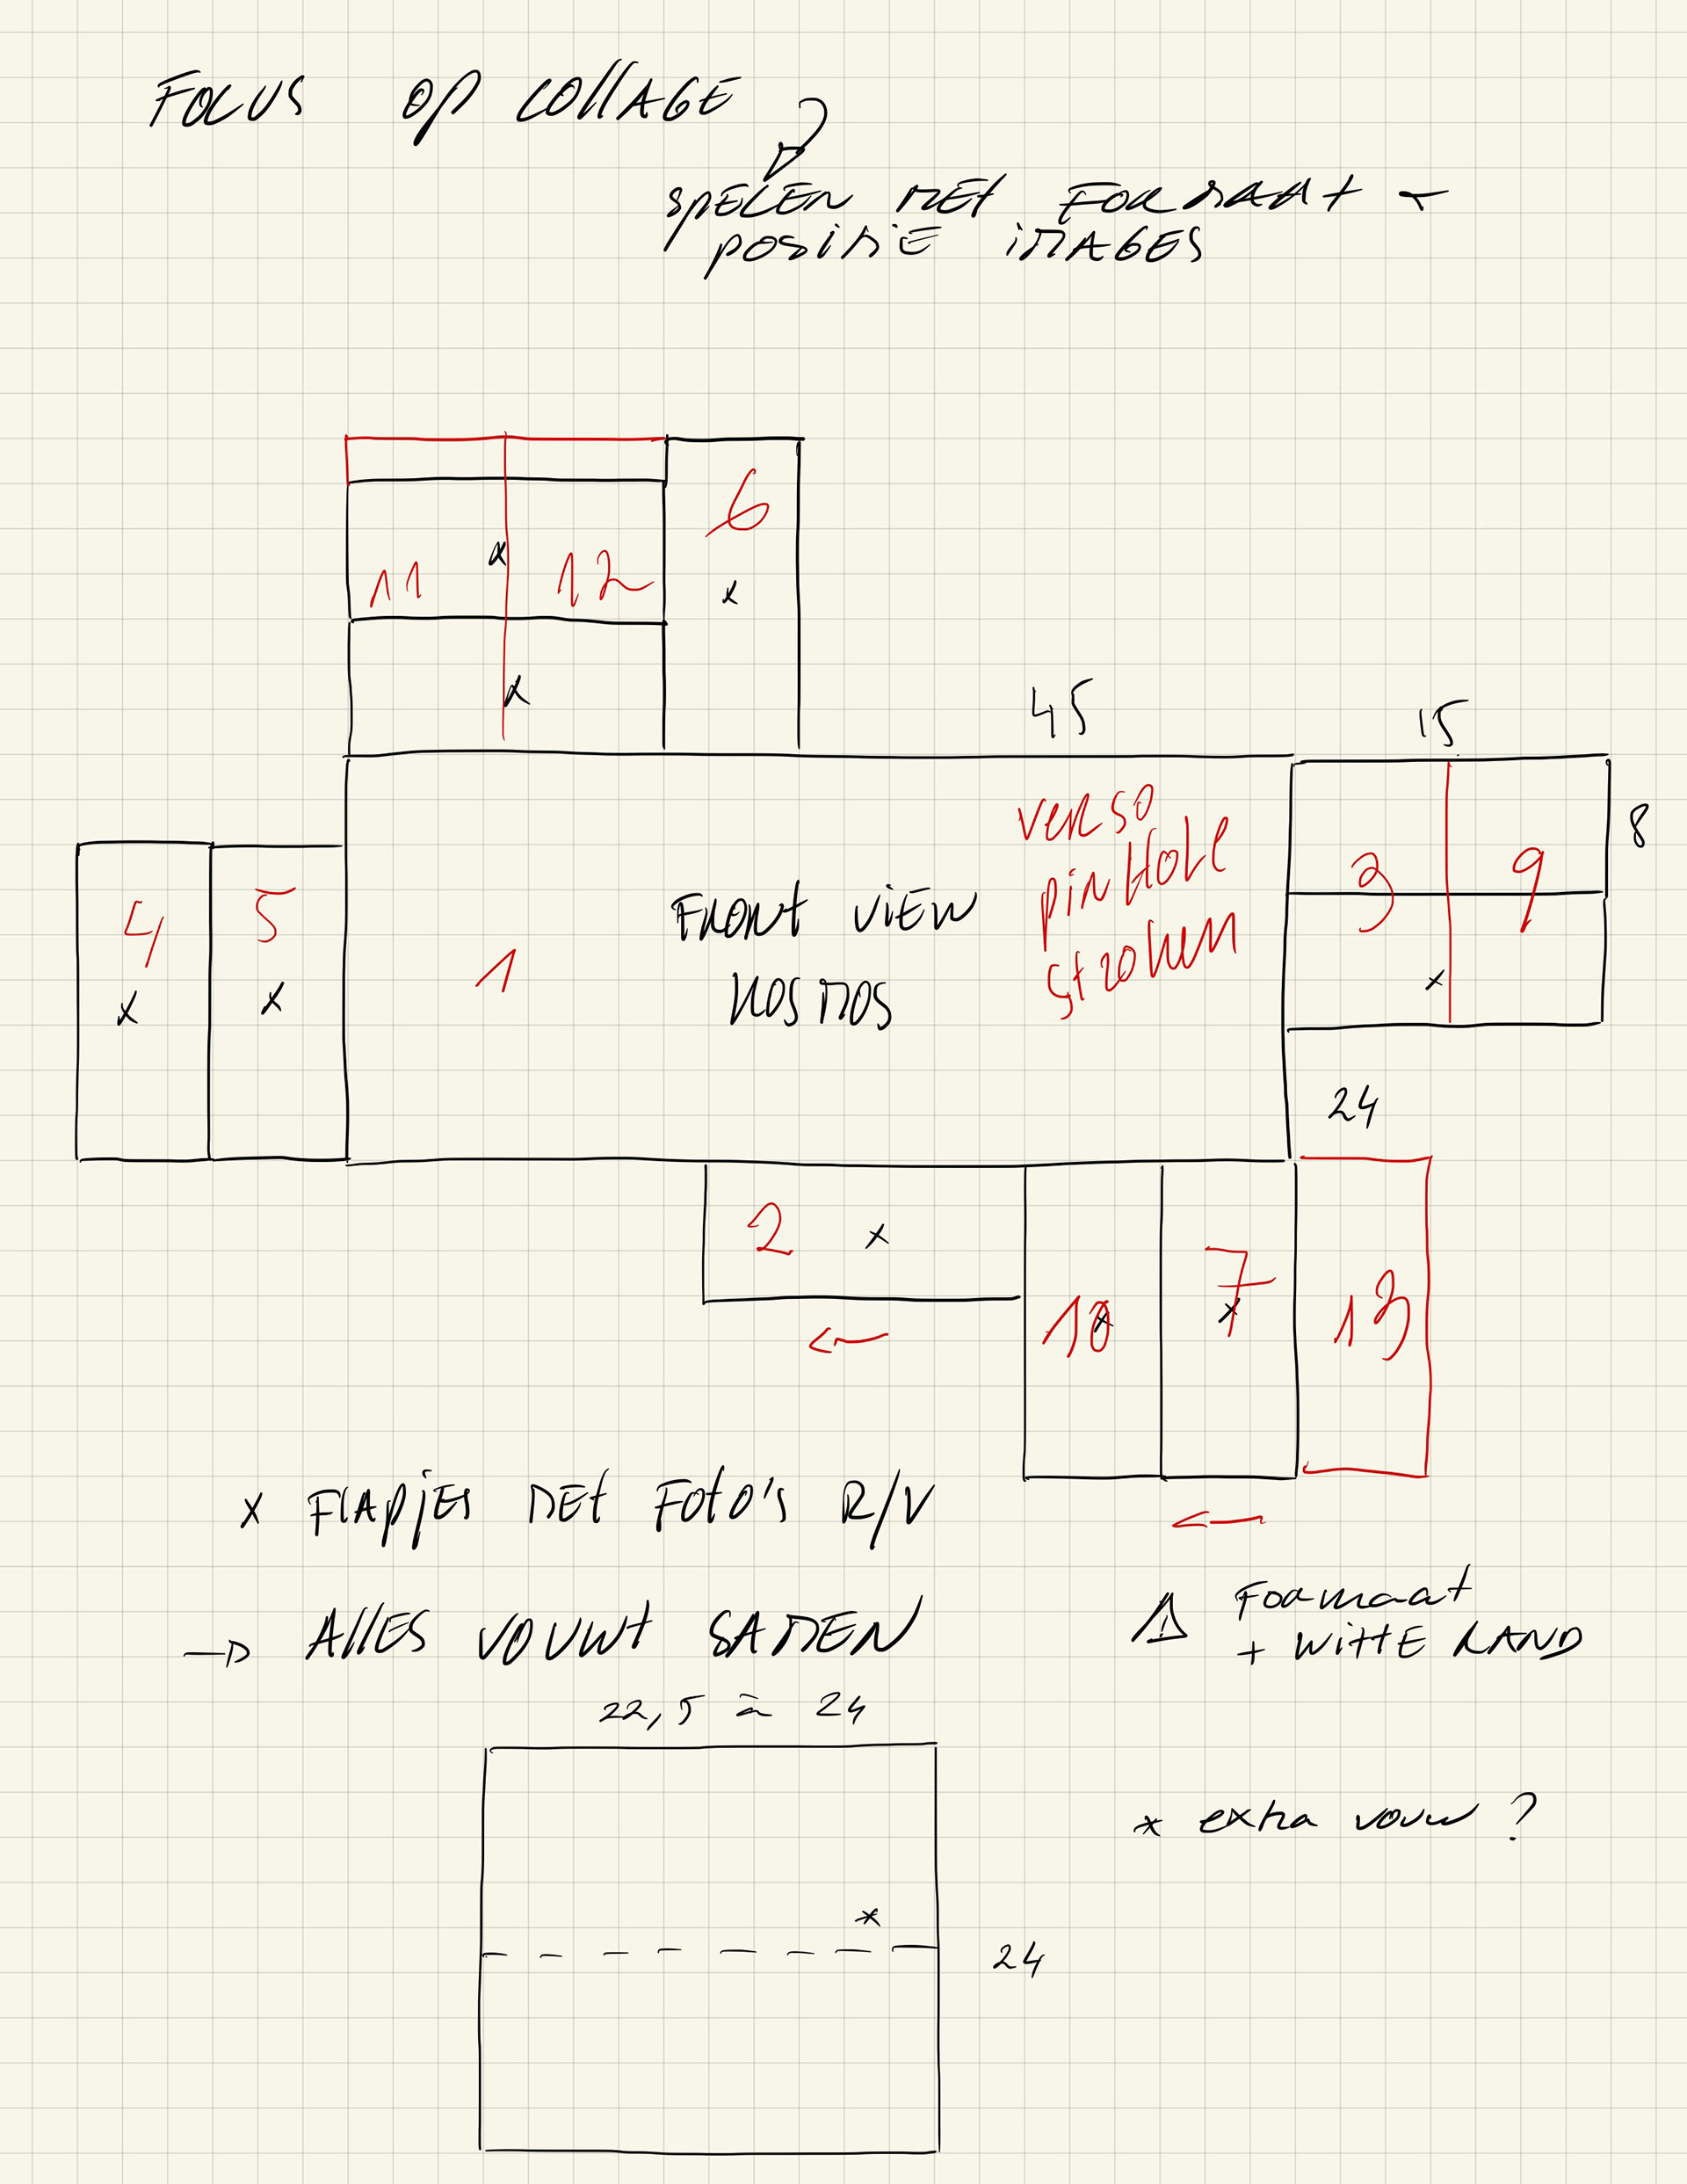 FOCUS OP COLLAGE
SPELEN MET FORMAAT +
POSITIE IMAGES
6
11 x 12
x
x
45
15
8
verso
pinHole
stroken
3 9
4
5
FRONT VIEW
KOSMOS
1
x
x
x
24
2 x
10 x
7 x
13
x FlAPjES MET FOTO'S R/V
→ AllES VOUWT SAMEN
⚠ Formaat
+ WITTE RAND
22,5 à 24
* extra vouw ?
*
24